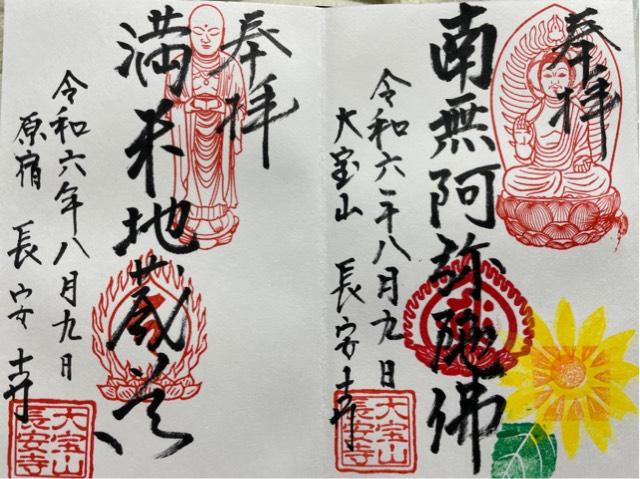 奉拝
南無阿弥陀佛
令和六年八月九日
大宝山 長安寺
大宝山
長安寺
奉拝
満米地蔵尊
令和六年八月九日
原宿 長安寺
大宝山
長安寺